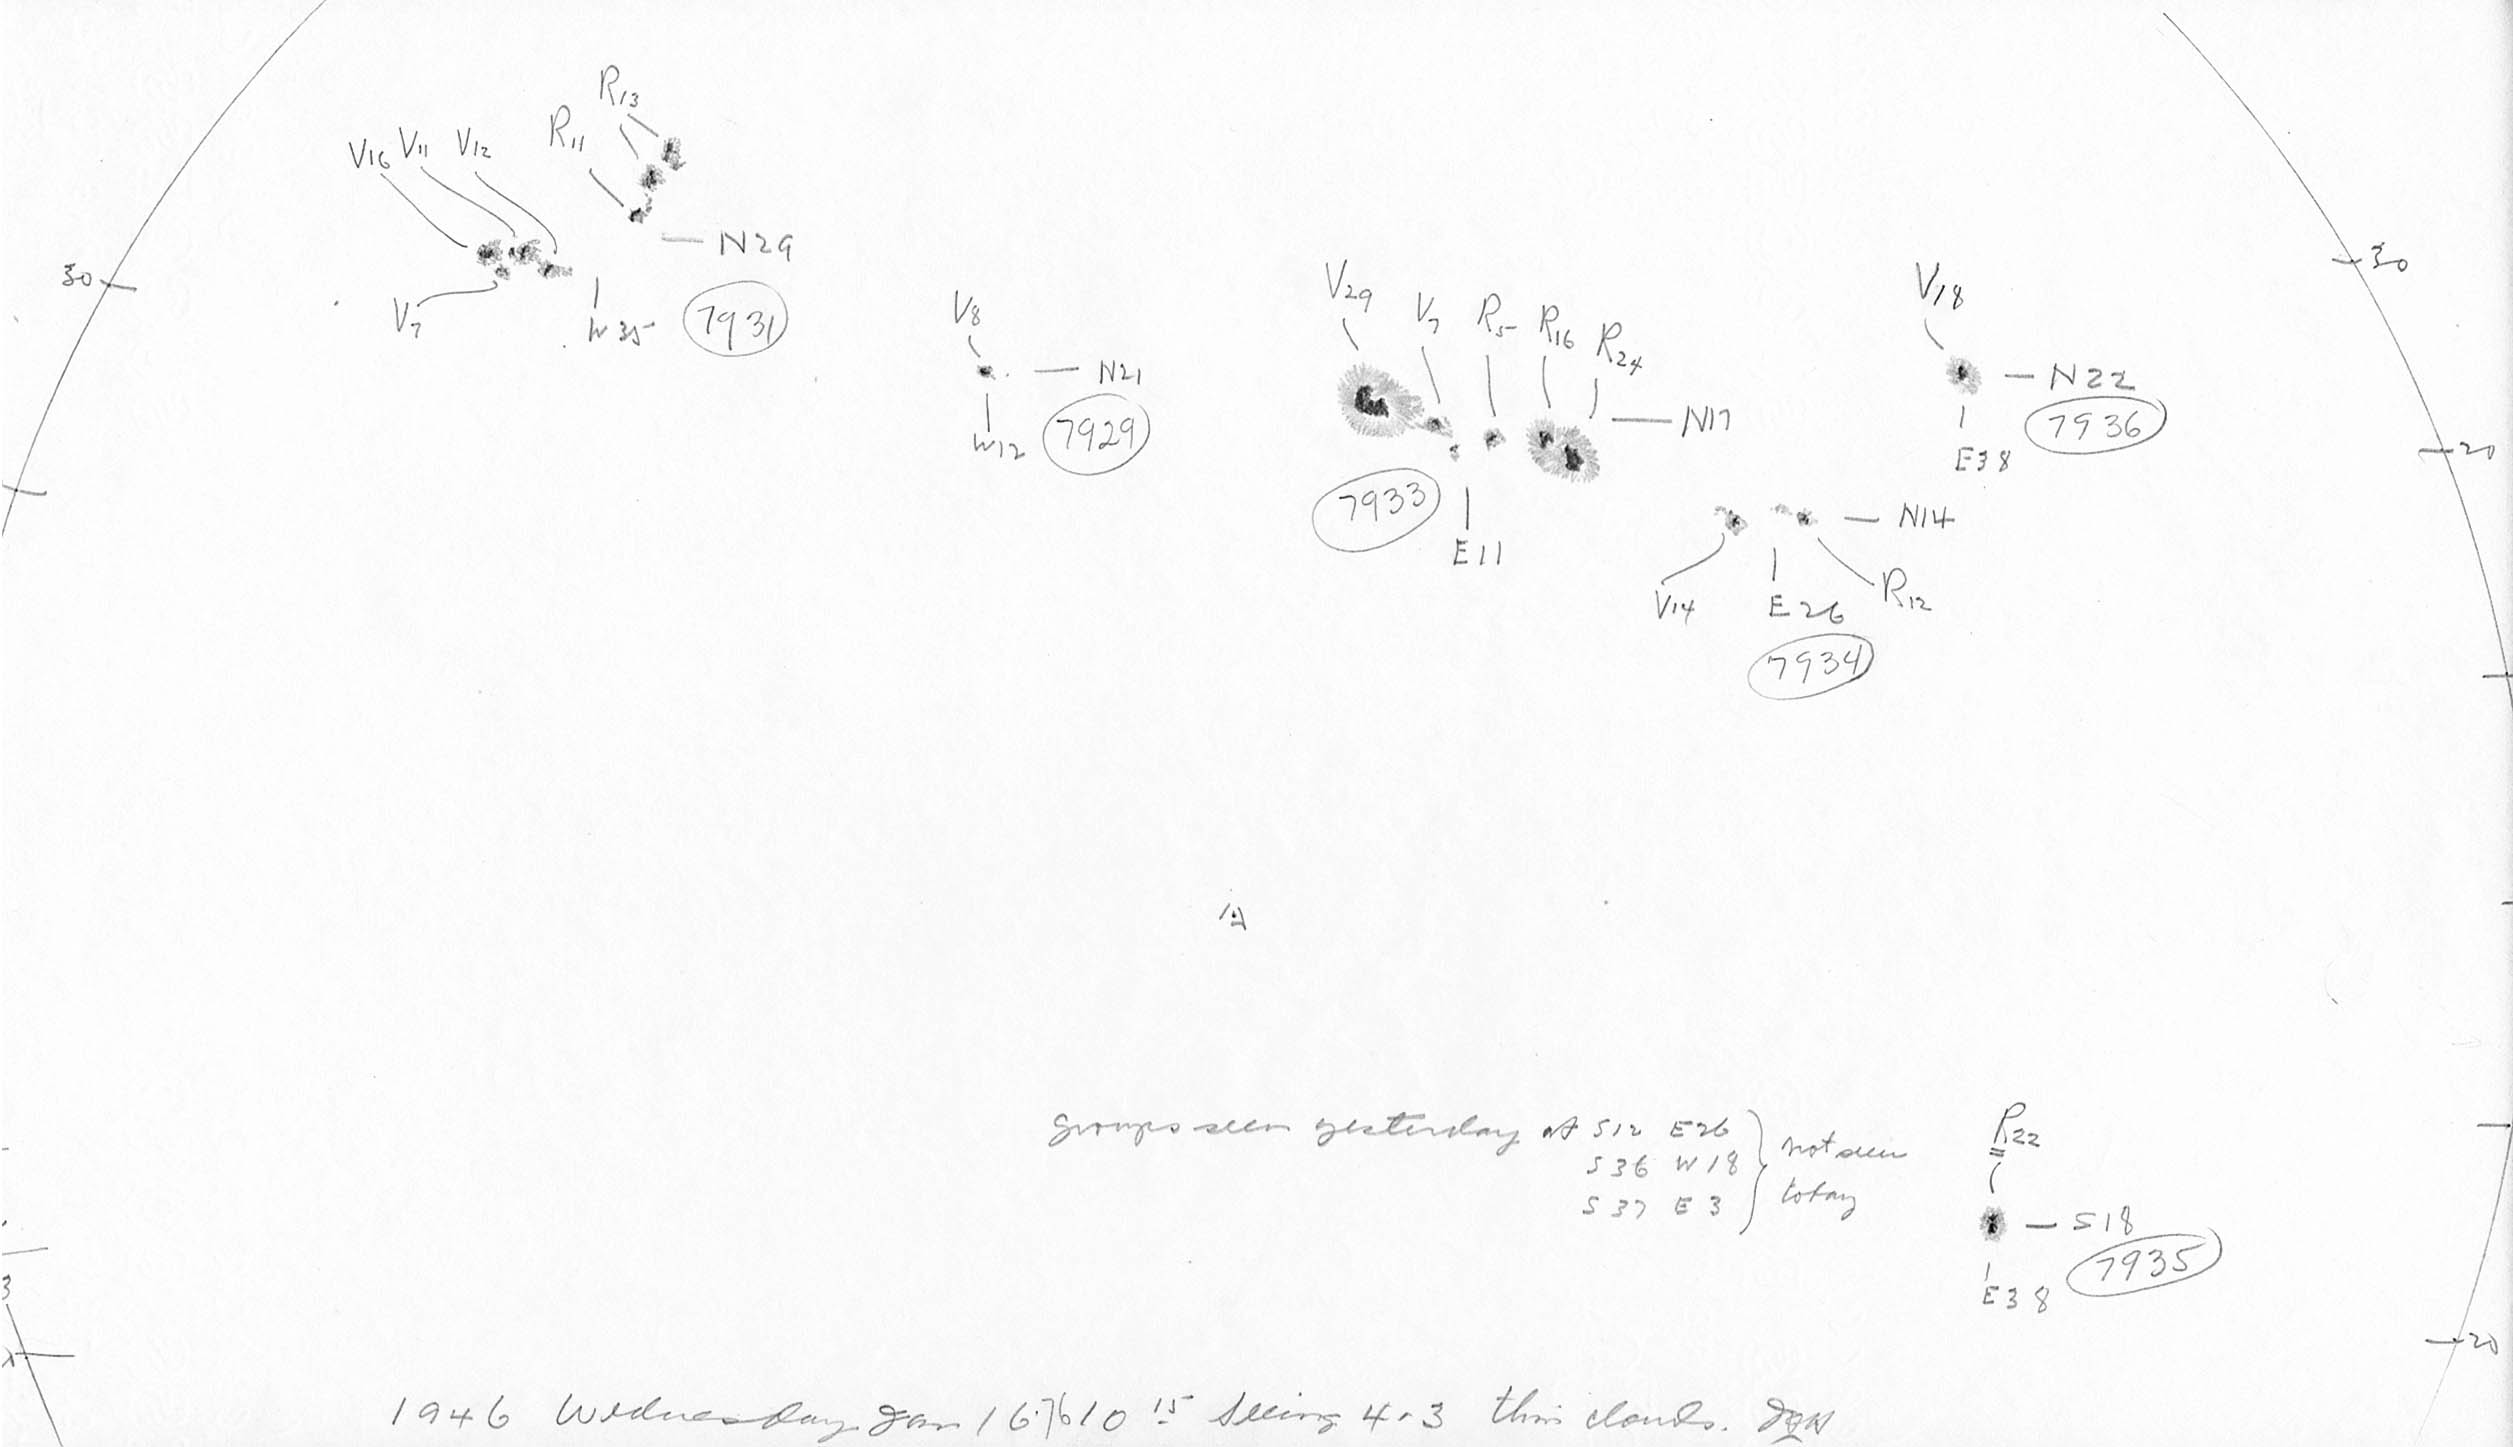 R13
R11
V16 V11 V12
N29
30
V7
W35
7931
V8
N21
W12
7929
V29 V7 R5 R16 R24
N17
7933
E11
V18
30
N22
7936
E38
20
N14
V14
E26
R12
7934
groups seen yesterday at S12 E26
S36 W18
S37 E3
not seen
today
R22
S18
7935
E38
3
20
1946 Wednesday Jan 16.76 10 15 Seeing 4-3 thin clouds.